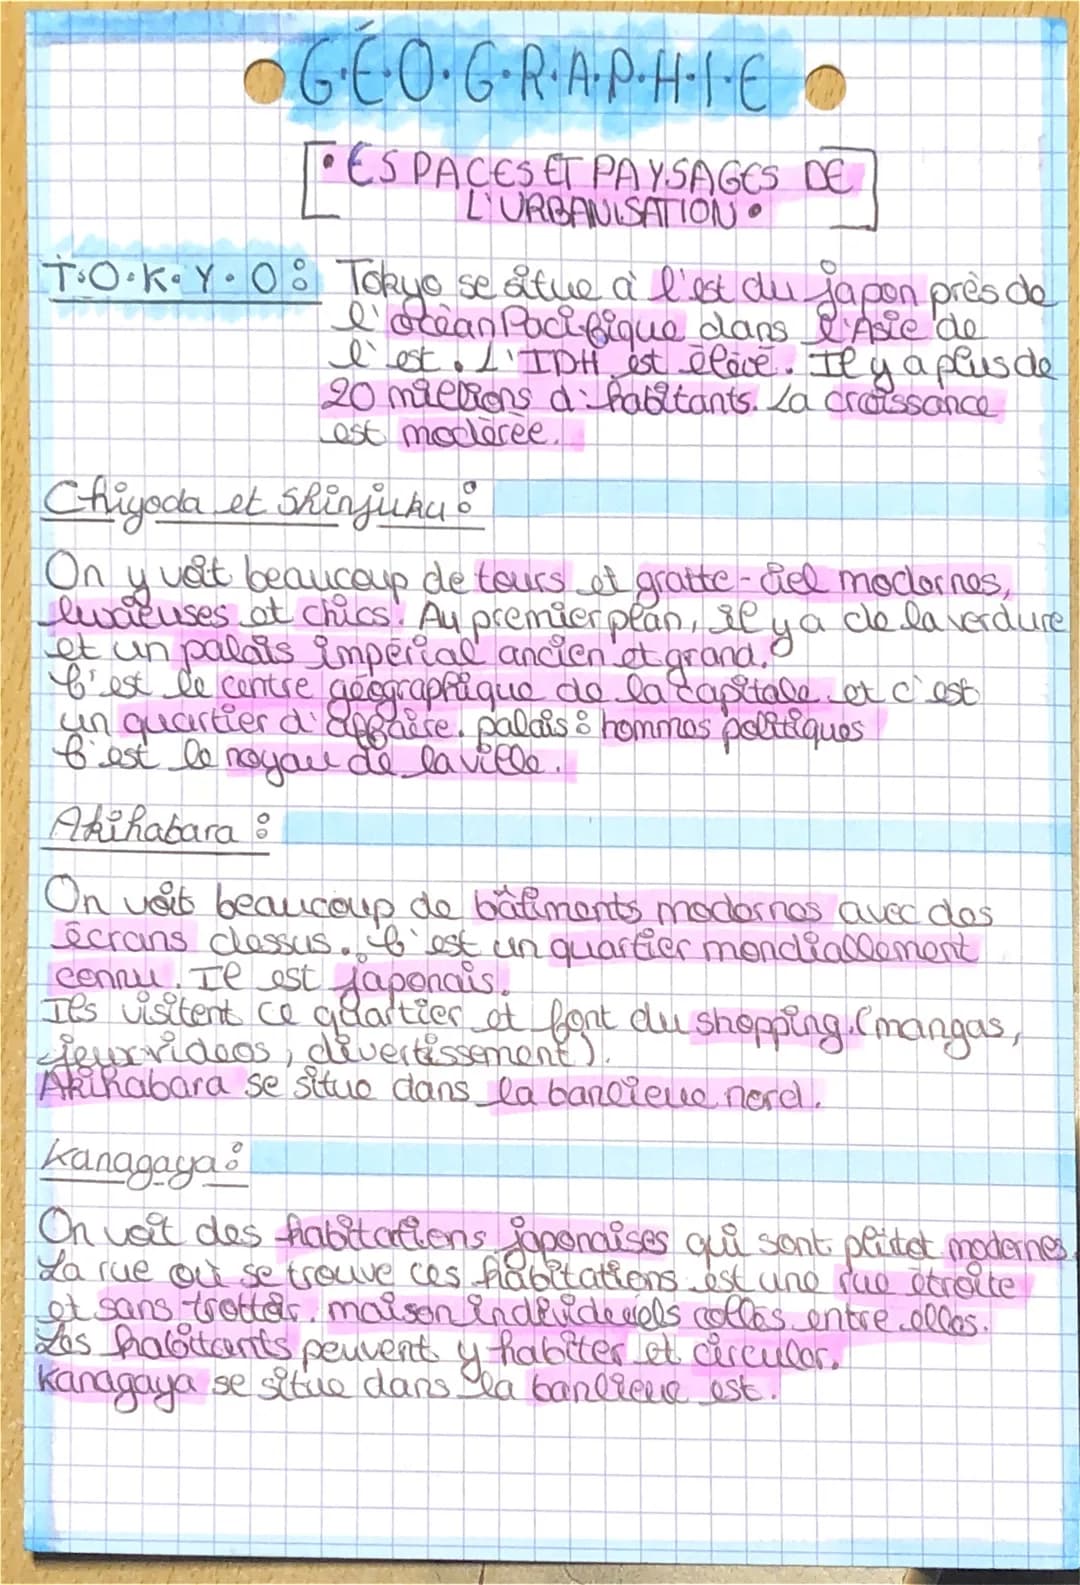 G.É.O.G.R.A.P.H.I.E
• ESPACES ET PAYSAGES DE
L'URBANISATION •
T.O.K.Y.O : Tokyo se situe à l'est du japon près de
l'océan Pacifique dans l'Asie de
l'est. L'IDH est élevé. Il y a plus de
20 millions d'habitants. La croissance
est modérée.
Chiyoda et Shinjuku :
On y voit beaucoup de tours et gratte-ciel modernes,
luxieuses et chics. Au premier plan, il y a de la verdure
et un palais impérial ancien et grand.
C'est le centre géographique de la capitale et c'est
un quartier d'affaire. palais : hommes politiques
C'est le noyau de la ville.
Akihabara :
On voit beaucoup de bâtiments modernes avec des
écrans dessus. C'est un quartier mondiallement
connu. Il est japonais.
Ils visitent ce quartier et font du shopping. (mangas,
jeux videos, divertissement).
Akihabara se situe dans la banlieue nord.
Kanagaya :
On voit des habitations japonaises qui sont plitot modernes.
La rue où se trouve ces habitations est une rue étroite
et sans trottoir. maison individuels collés entre elles.
Les habitants peuvent y habiter et circuler.
Kanagaya se situe dans la banlieue est.